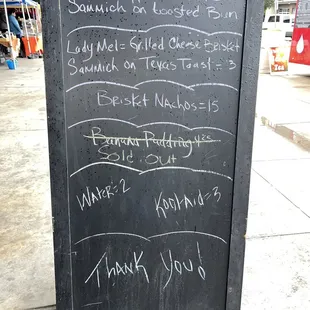 Sammich on Toasted Bun
Lady Mel = Grilled Cheese Brisket
Sammich on Texas Toast = 3
Brisket Nachos = 15
Banana Pudding
Sold out
Water = 2
Kool-Aid = 3
Thank You!